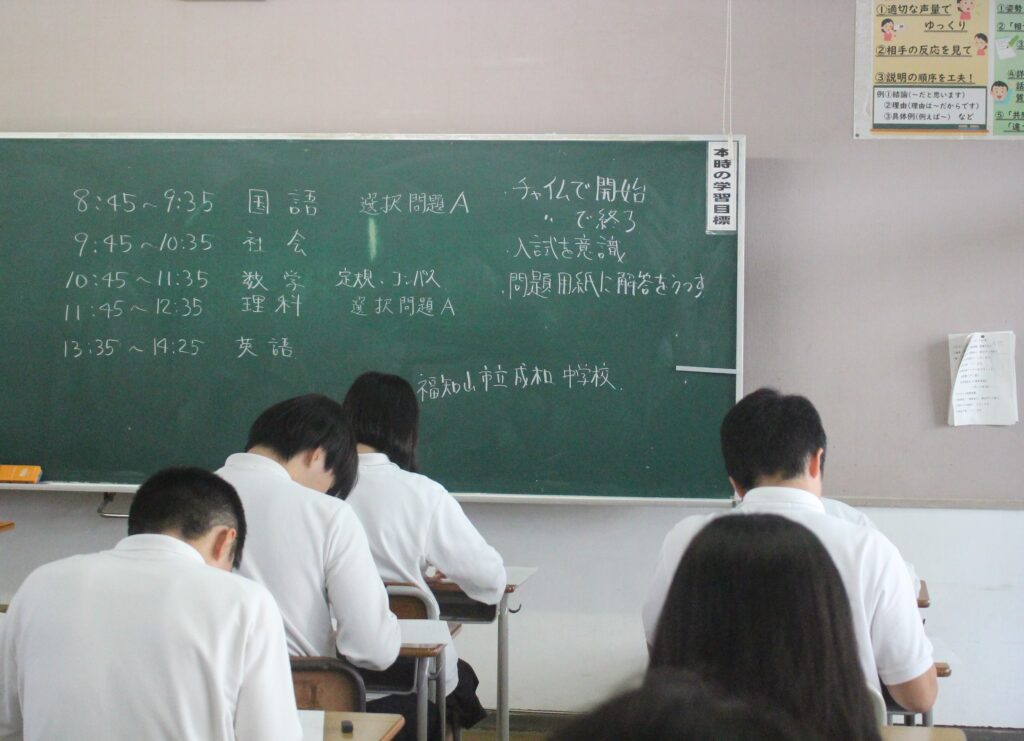 8:45～9:35 国語 選択問題A
9:45～10:35 社会
10:45～11:35 数学 定規、コンパス
11:45～12:35 理科 選択問題A
13:35～14:25 英語
・チャイムで開始
〃 で終了
・入試を意識
・問題用紙に解答をうつす
福知山市立成和中学校
本時の学習目標
①適切な声量で
ゆっくり
②相手の反応を見て
③説明の順序を工夫！
例①結論(～だと思います)
②理由(理由は～だからです)
③具体例(例えば～) など
①姿勢
②「相
③
④詳
話
質
⑤「共
「違